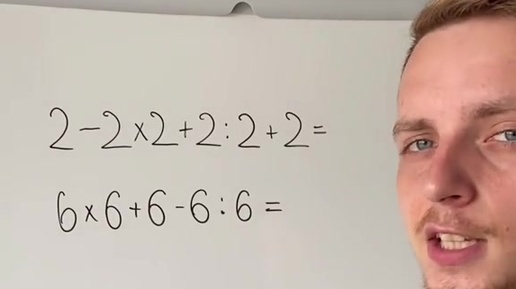 2-2×2+2:2+2=
6×6+6-6:6=